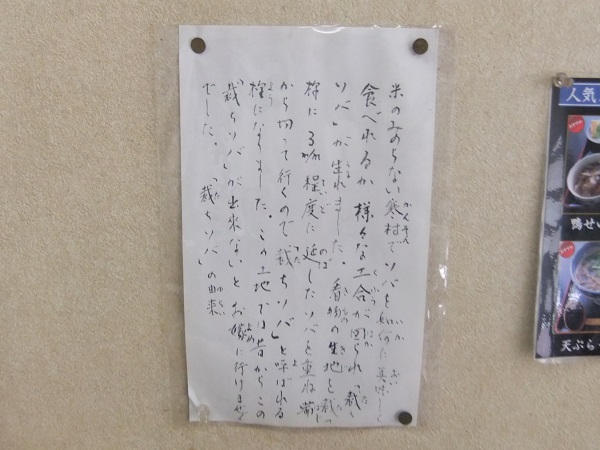 米のみのらない寒村でソバを如何に美味しく
食べれるか様々な工合が図られ「裁ち
ソバ」が生れました。着物の生地を裁つ
様に3㎜程度に延したソバを重ね端
から切って行くので「裁ちソバ」と呼ばれる
様になりました。この土地では昔からこの
「裁ちソバ」が出来ないとお嫁に行けません
でした。「裁ちソバ」の由来
人気
鴨せい
天ぷら